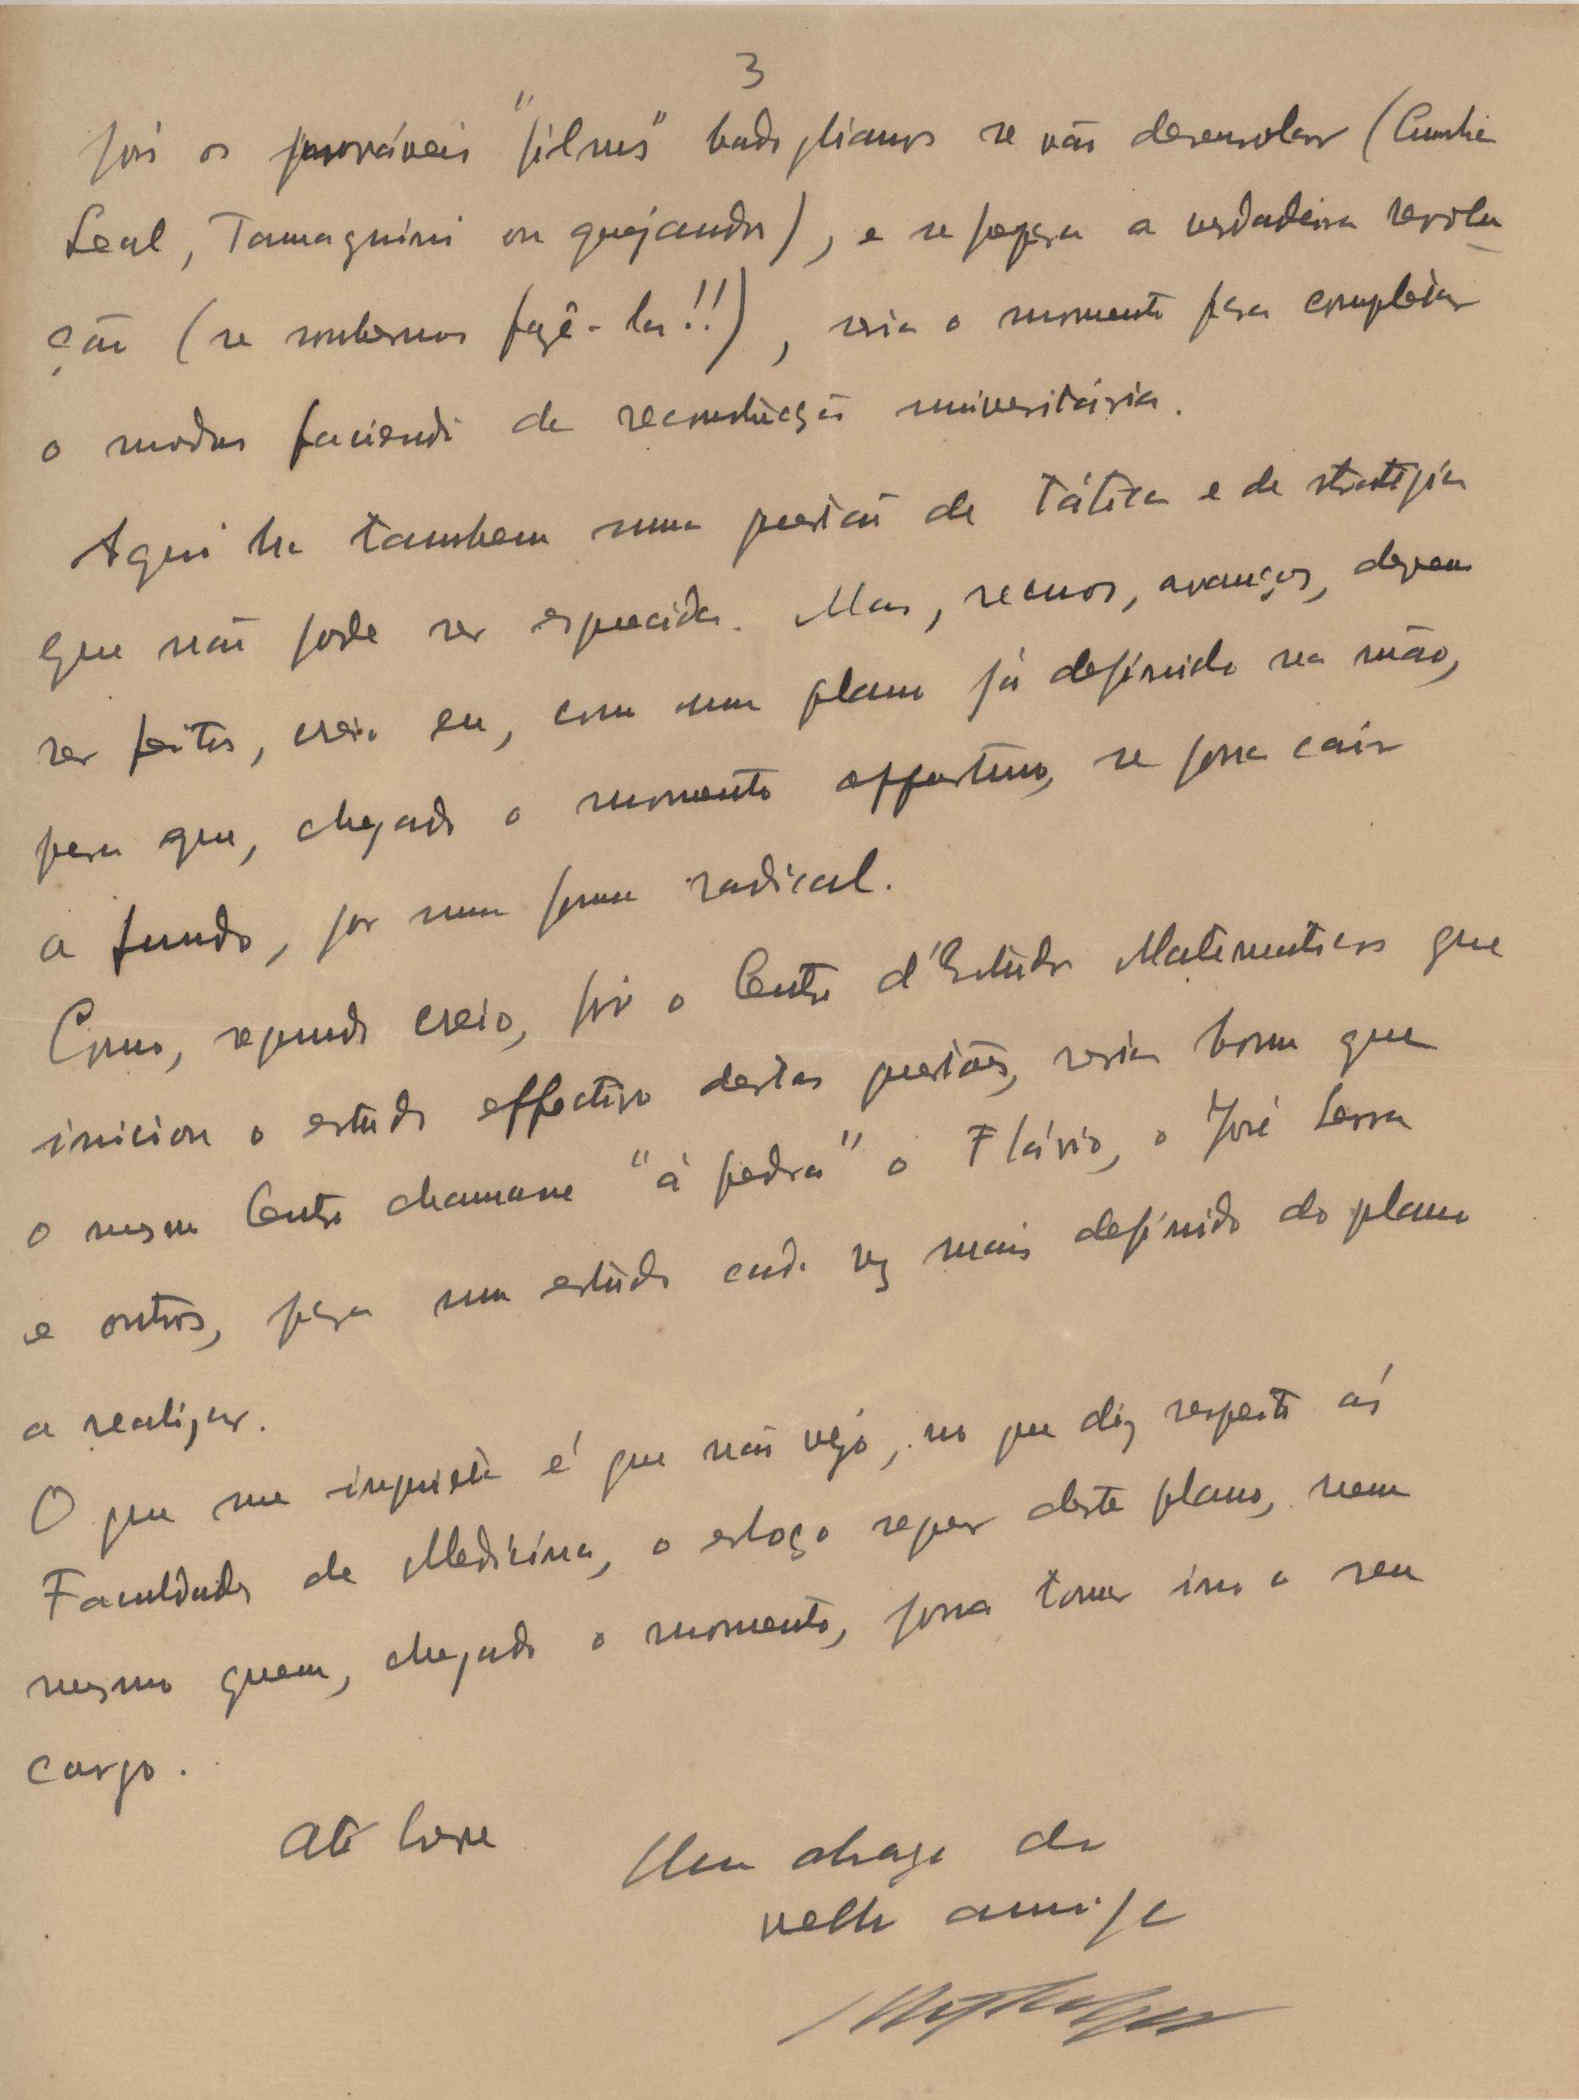 3
pois os prováveis "films" badoglianos se vão desenvolver (Cunha
Leal, Tamagnini ou quejandos), e se prepara a verdadeira revolu
ção (se soubermos fazê-la!!), seria o momento para completar
o modus faciendi da reconstrução universitária.
Aqui ha tambem uma questão de tática e de strategia
que não pode ser esquecida. Mas, recuos, avanços, devem
ser feitos, creio eu, com um plano já definido na mão,
para que, chegado o momento opportuno, se possa cair
a fundo, por uma forma radical.
Como, segundo creio, foi o Centro d'Estudos Matematicos que
iniciou o estudo effectivo destas questões, seria bom que
o mesmo Centro chamasse "à pedra" o Flávio, o José Serra
e outros, para um estudo cada vez mais definido do plano
a realizar.
O que me inquieta é que não vejo, no que diz respeito ás
Faculdades de Medicina, o esboço sequer deste plano, nem
mesmo quem, chegado o momento, possa tomar isso a seu
cargo.
Até breve
Um abraço do
velho amigo